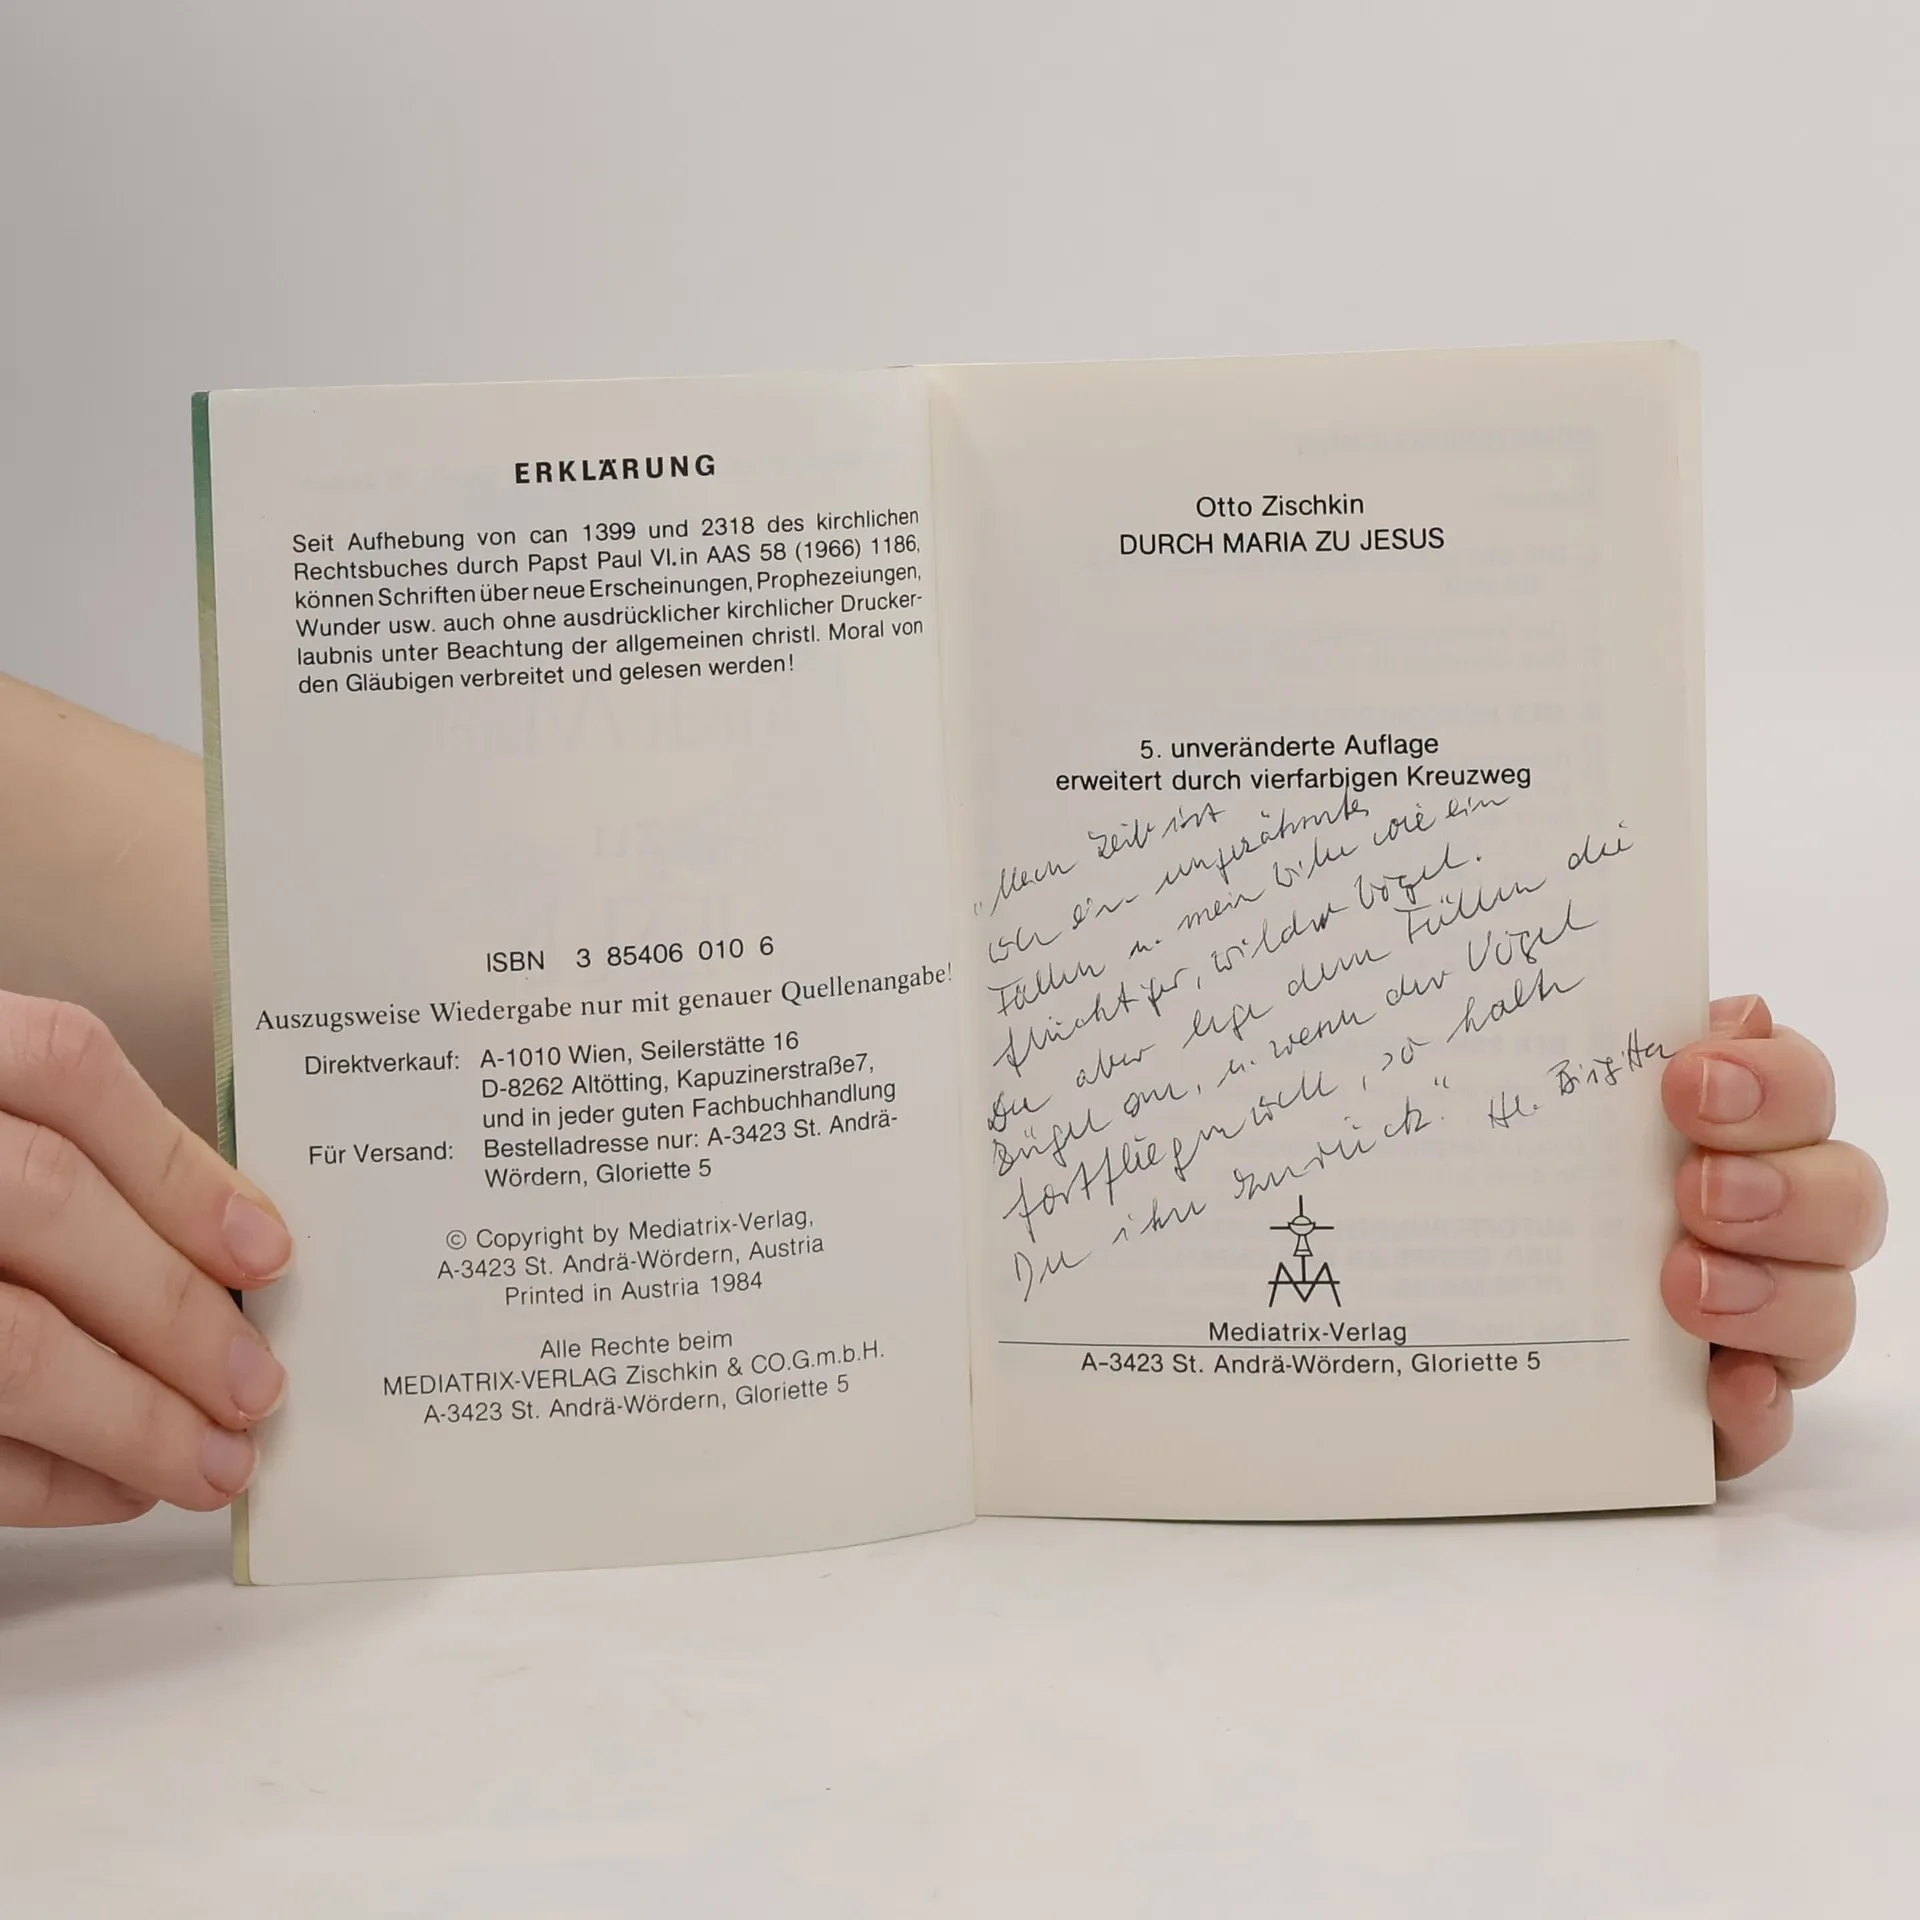 ERKLÄRUNG
Seit Aufhebung von can 1399 und 2318 des kirchlichen
Rechtsbuches durch Papst Paul VI. in AAS 58 (1966) 1186,
können Schriften über neue Erscheinungen, Prophezeiungen,
Wunder usw. auch ohne ausdrücklicher kirchlicher Drucker-
laubnis unter Beachtung der allgemeinen christl. Moral von
den Gläubigen verbreitet und gelesen werden!
ISBN 3 85406 010 6
Auszugsweise Wiedergabe nur mit genauer Quellenangabe!
Direktverkauf: A-1010 Wien, Seilerstätte 16
D-8262 Altötting, Kapuzinerstraße7,
und in jeder guten Fachbuchhandlung
Für Versand: Bestelladresse nur: A-3423 St. Andrä-
Wördern, Gloriette 5
© Copyright by Mediatrix-Verlag,
A-3423 St. Andrä-Wördern, Austria
Printed in Austria 1984
Alle Rechte beim
MEDIATRIX-VERLAG Zischkin & CO.G.m.b.H.
A-3423 St. Andrä-Wördern, Gloriette 5
Otto Zischkin
DURCH MARIA ZU JESUS
5. unveränderte Auflage
erweitert durch vierfarbigen Kreuzweg
ist
wie ein ungezähmtes
Füllen u. mein wie ein
flüchtiger, wilder Vogel.
Du aber lege dem Füllen die
Zügel an, u. wenn der Vogel
fortfliegen will, so halte
Du ihn zurück." Hl. Birgitta
Mediatrix-Verlag
A-3423 St. Andrä-Wördern, Gloriette 5